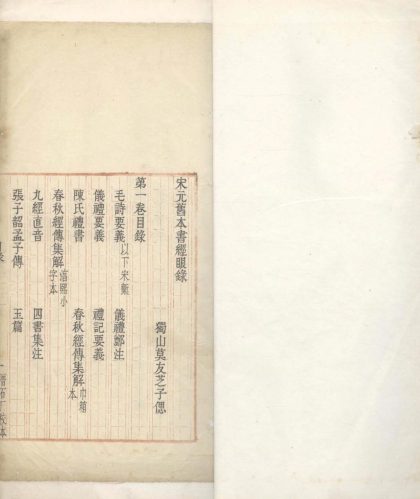 宋元舊本書經眼錄
獨山莫友芝子偲
第一卷目錄
毛詩要義以下宋槧 儀禮鄭注
儀禮要義 禮記要義
陳氏禮書 春秋經傳集解巾箱本
春秋經傳集解淳熙小字本
九經直音 四書集注
張子韶孟子傳 玉篇